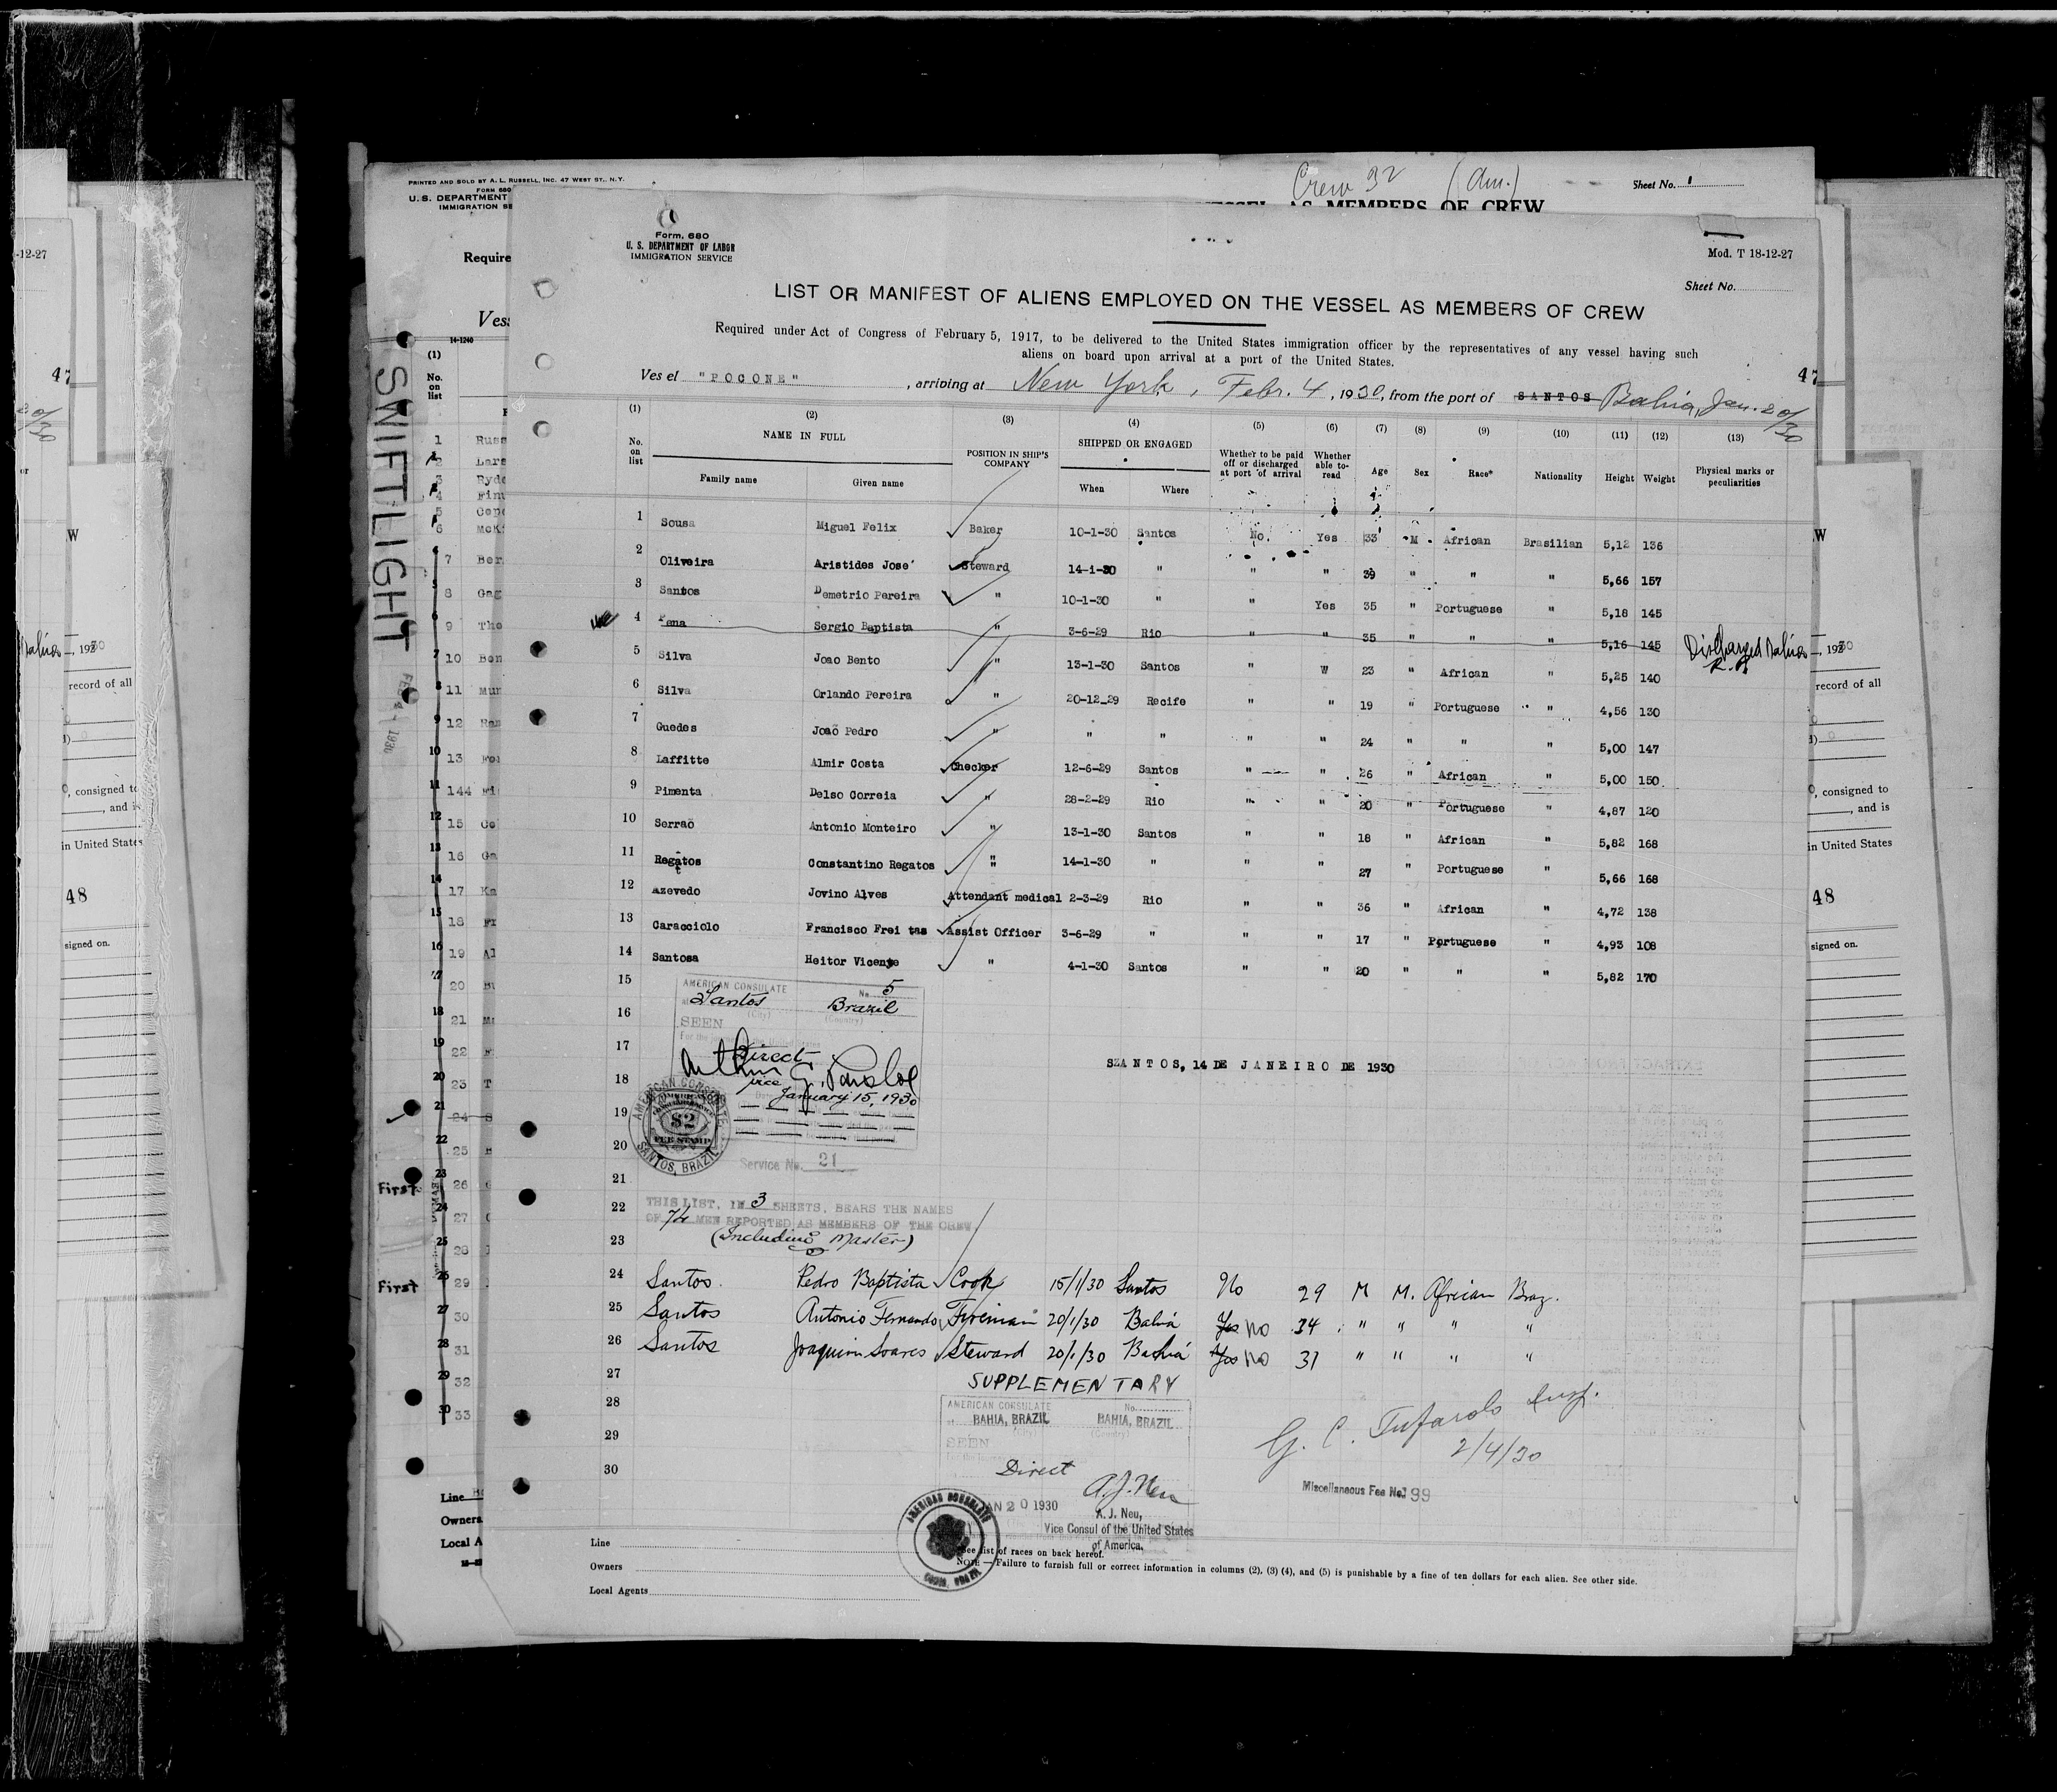 PRINTED AND SOLD BY A. L. RUSSELL, INC. 47 WEST ST., N. Y.
FORM 680
U. S. DEPARTMENT
Crew 32 (Am.)
Sheet No. 1
AS MEMBERS OF CREW
Require
SWIFTLIGHT
14-1240
(1)
No. on list
First
First
Form. 680
U. S. DEPARTMENT OF LABOR
IMMIGRATION SERVICE
Mod. T 18-12-27
Sheet No.
LIST OR MANIFEST OF ALIENS EMPLOYED ON THE VESSEL AS MEMBERS OF CREW
Required under Act of Congress of February 5, 1917, to be delivered to the United States immigration officer by the representatives of any vessel having such
aliens on board upon arrival at a port of the United States.
Ves el "POCONE", arriving at New York, Febr. 4, 1930, from the port of SANTOS Bahia, Jan. 20/30
(1) (2) (3) (4) (5) (6) (7) (8) (9) (10) (11) (12) (13)
No. on list NAME IN FULL POSITION IN SHIP'S COMPANY SHIPPED OR ENGAGED Whether to be paid off or discharged at port of arrival Whether able to read Age Sex Race* Nationality Height Weight Physical marks or peculiarities
Family name Given name When Where
1 Sousa Miguel Felix Baker 10-1-30 Santos No. Yes 33 M African Brasilian 5,12 136
2 Oliveira Aristides Jose' Steward 14-1-30 " " " 39 " " " 5,66 157
3 Santos Demetrio Pereira " 10-1-30 " " Yes 35 " Portuguese " 5,18 145
4 Pena Sergio Baptista " 3-6-29 Rio " " 35 " " " 5,16 145 Discharged Bahia
5 Silva Joao Bento " 13-1-30 Santos " W 23 " African " 5,25 140
6 Silva Orlando Pereira " 20-12_29 Recife " " 19 " Portuguese " 4,56 130
7 Guedes Joaõ Pedro " " " " " 24 " " " 5,00 147
8 Laffitte Almir Costa Checker 12-6-29 Santos " " 26 " African " 5,00 150
9 Pimenta Delso Correia " 28-2-29 Rio " " 20 " Portuguese " 4,87 120
10 Serrao Antonio Monteiro " 13-1-30 Santos " " 18 " African " 5,82 168
11 Regatos Constantino Regatos " 14-1-30 " " " 27 " Portuguese " 5,66 168
12 Azevedo Jovino Alves Attendant medical 2-3-29 Rio " " 36 " African " 4,72 138
13 Caracciolo Francisco Frei tas Assist Officer 3-6-29 " " " 17 " Portuguese " 4,93 108
14 Santosa Heitor Vicente " 4-1-30 Santos " " 20 " " " 5,82 170
15
AMERICAN CONSULATE No. 5
Santos Brazil
(City) (Country)
16
SEEN
17
Direct
SZANTOS, 14 DE JANEIRO DE 1930
18
vice
January 15, 1930
19
AMERICAN CONSULATE
$2
FEE STAMP
SANTOS, BRAZIL
20
Service No. 21
21
22 THIS LIST, IN 3 SHEETS, BEARS THE NAMES
OF 74 MEN REPORTED AS MEMBERS OF THE CREW.
23 (Including Master)
24 Santos Pedro Baptista Cook 15/1/30 Santos No 29 M M. African Braz.
25 Santos Antonio Fernando Fireman 20/1/30 Bahia Yes No 34 " " " "
26 Santos Joaquim Soares Steward 20/1/30 Bahia Yes No 31 " " " "
27 SUPPLEMENTARY
28 AMERICAN CONSULATE No.
BAHIA, BRAZIL BAHIA, BRAZIL
(City) (Country)
29 SEEN
30 Direct
G. C. Tufarolo Insp.
2/4/30
A. J. Neu
Miscellaneous Fee No. 199
JAN 20 1930
A. J. Neu,
Vice Consul of the United States
of America.
Line
*See list of races on back hereof.
Owners
NOTE — Failure to furnish full or correct information in columns (2), (3) (4), and (5) is punishable by a fine of ten dollars for each alien. See other side.
Local Agents
47
record of all
consigned to
, and is
in United States
48
signed on.